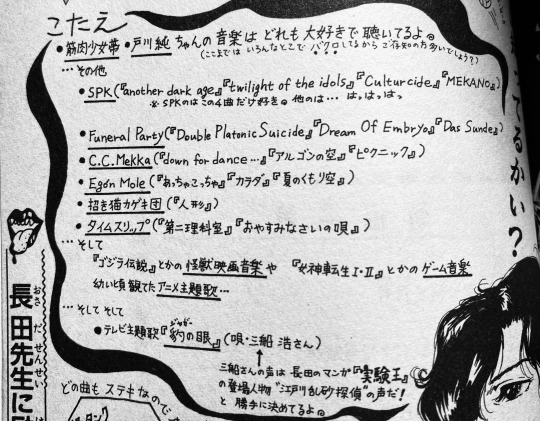 こたえ
・筋肉少女帯・戸川純ちゃんの音楽はどれも大好きで聴いてるよ。
(ここまではいろんなとこでバクロしてるからご存知の方多いでしょう?)
…その他
・SPK(『another dark age』『twilight of the idols』『Culturcide』『MEKANO』)
※SPKのはこの4曲だけ好き。他のは…はっはっはっ
・Funeral Party(『Double Platonic Suicide』『Dream Of Embryo』『Das Sunde』)
・C.C.Mekka(『down for dance…』『アルゴンの空』『ピクニック』)
・Egon Mole(『あっちゃこっちゃ』『カラダ』『夏のくもり空』)
・招き猫カゲキ団(『人形』)
・タイムスリップ(『第二理科室』『おやすみなさいの唄』)
…そして
『ゴジラ伝説』とかの怪獣映画音楽や『女神転生Ⅰ・Ⅱ』とかのゲーム音楽
幼い頃観てたアニメ主題歌…
…そしてそして
・テレビ主題歌『豹の眼』(唄・三船浩さん)
ジャガー
↑
三船さんの声は長田のマンガ『実験王』
の登場人物"江戸川乱砂探偵"の声だ!
と勝手に決めてるよ。
どの曲もステキなので
てるかい?
長田先生に
おさだせんせい